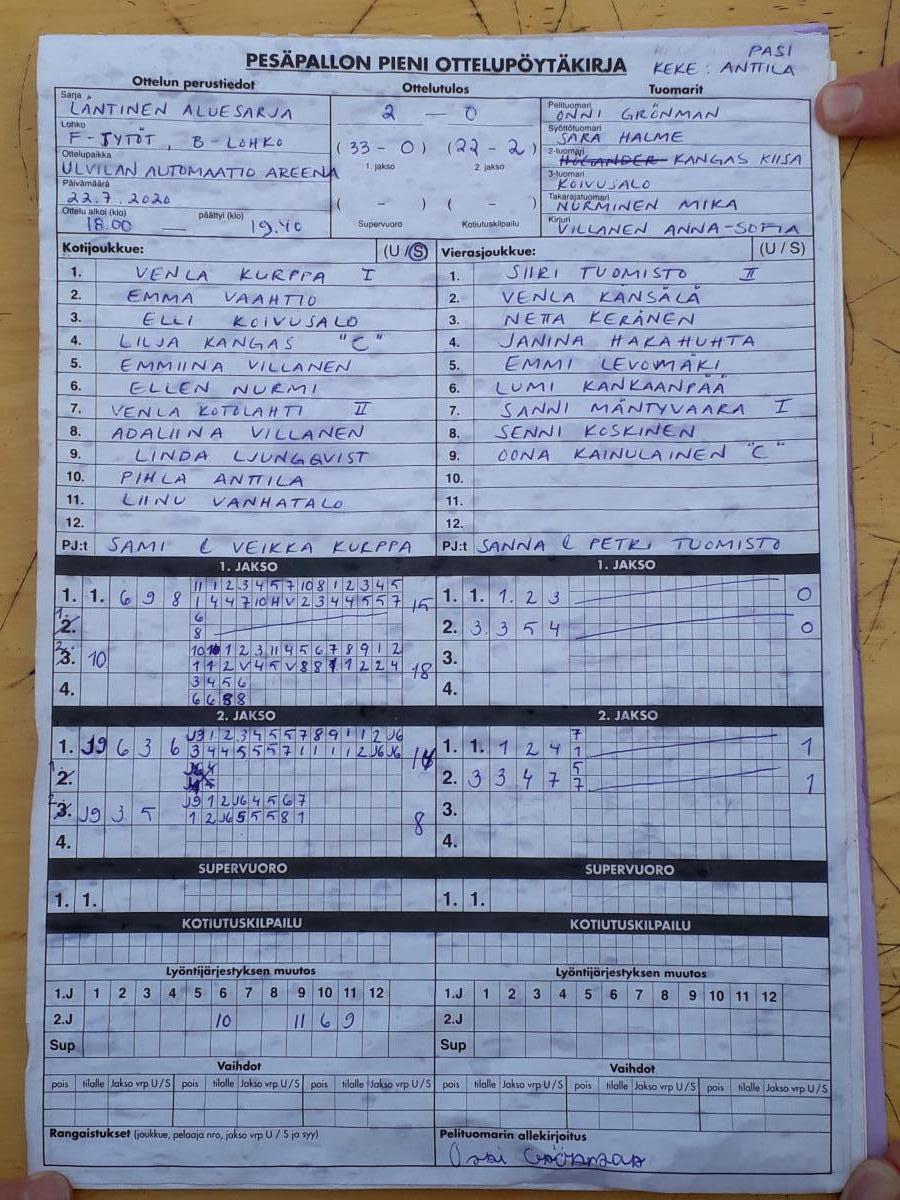 PESÄPALLON PIENI OTTELUPÖYTÄKIRJA
PASI
KEKE : ANTTILA
Ottelun perustiedot
Ottelutulos
Tuomarit
Sarja LÄNTINEN ALUESARJA
Lohko F-TYTÖT, B-LOHKO
Ottelupaikka ULVILAN AUTOMAATIO AREENA
Päivämäärä 22.7.2020
Ottelu alkoi (klo) 18.00 — päättyi (klo) 19.40
2 — 0
(33 - 0) (22 - 2)
1. jakso 2. jakso
( - ) ( - )
Supervuoro Kotiutuskilpailu
Pelituomari ONNI GRÖNMAN
Syöttötuomari SARA HALME
2-tuomari HÖLANDER KANGAS KIISA
3-tuomari KOIVUSALO
Takarajatuomari NURMINEN MIKA
Kirjuri VILLANEN ANNA-SOFIA
Kotijoukkue: (U/S)
1. VENLA KURPPA I
2. EMMA VAAHTIO
3. ELLI KOIVUSALO
4. LILJA KANGAS "C"
5. EMMIINA VILLANEN
6. ELLEN NURMI
7. VENLA KOTOLAHTI II
8. ADALIINA VILLANEN
9. LINDA LJUNGQVIST
10. PIHLA ANTTILA
11. LIINU VANHATALO
12.
PJ:t SAMI & VEIKKA KURPPA
Vierasjoukkue: (U / S)
1. SIIRI TUOMISTO II
2. VENLA KÄNSÄLÄ
3. NETTA KERÄNEN
4. JANINA HARAHUHTA
5. EMMI LEVOMÄKI
6. LUMI KANKAANPÄÄ
7. SANNI MÄNTYVAARA I
8. SENNI KOSKINEN
9. OONA KAINULAINEN "C"
10.
11.
12.
PJ:t SANNA & PETRI TUOMISTO
1. JAKSO
1. 1. 6 9 8
11 1 2 3 4 5 7 10 8 1 2 3 4 5
1 4 4 7 10 H V 2 3 4 4 5 5 7
15
2.
6
8
3. 10
18
4.
3 4 5 6
6 6 8 8
1. JAKSO
1. 1. 1. 2 3 0
2. 3 3 5 4 0
3.
4.
2. JAKSO
1. J9 6 3 6
14
2.
3. J9 3 5
J9 1 2 J6 4 5 6 7
1 2 J6 5 5 5 8 1
8
4.
2. JAKSO
1. 1. 1 2 4 7 1
1
2. 3 3 4 7 5 7
1
3.
4.
SUPERVUORO
1. 1.
SUPERVUORO
1. 1.
KOTIUTUSKILPAILU
KOTIUTUSKILPAILU
Lyöntijärjestyksen muutos
1.J 1 2 3 4 5 6 7 8 9 10 11 12
2.J 10 11 6 9
Sup
Lyöntijärjestyksen muutos
1.J 1 2 3 4 5 6 7 8 9 10 11 12
2.J
Sup
Vaihdot
pois tilalle Jakso vrp U/S pois tilalle Jakso vrp U/S pois tilalle Jakso vrp U/S
Vaihdot
pois tilalle Jakso vrp U/S pois tilalle Jakso vrp U/S pois tilalle Jakso vrp U/S
Rangaistukset (joukkue, pelaaja nro, jakso vrp U / S ja syy)
Pelituomarin allekirjoitus